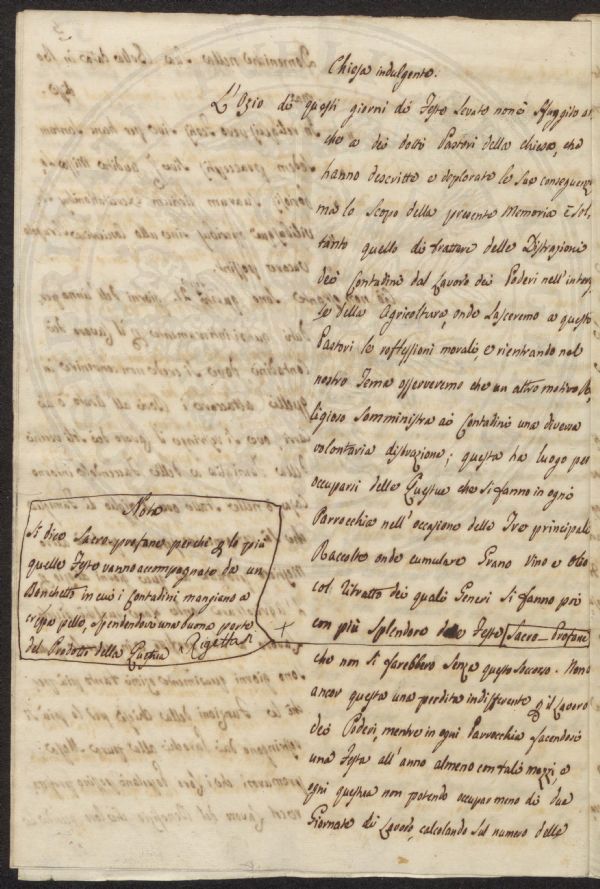 Chiesa indulgente.
L'Ozio di questi giorni di Feste levate non è sfuggito an,
che a dei dotti Pastori della chiesa, che
hanno descritte e deplorate le sue conseguenze
ma lo scopo della presente Memoria è sol,
tanto quello di trattare delle Distrazioni
dei Contadini dal Lavoro dei Poderi nell'interes,
se della Agricoltura, onde lasceremo a questi
Pastori le reflessioni morali, e rientrando nel
nostro Tema osserveremo che un altro motivo Re,
ligioso somministra ai Contadini una diversa
volontaria distrazione; questa ha luogo per
occuparsi delle Questue che si fanno in ogni
Parrocchia nell'occasione delle Tre principali
Raccolte onde cumulare Grano Vino e Olio
col Ritratto dei quali Generi si fanno poi
con più splendore le Feste Sacro-Profane
che non si farebbero senza questo soccorso. Non è
ancor questa una perdita indifferente p il Lavoro
dei Poderi, mentre in ogni Parrocchia facendosi
una Festa all'anno almeno con tali mezzi, e
ogni questua non potendo occupar meno di due
Giornate di Lavoro, calcolando sul numero delle
Nota
Si dice Sacro-profane perchè p lo più
quelle Feste vanno accompagnate da un
Banchetto in cui i Contadini mangiano a
crepa pelle, spendendovi una buona parte
del Prodotto della Questua Rigettasi
+